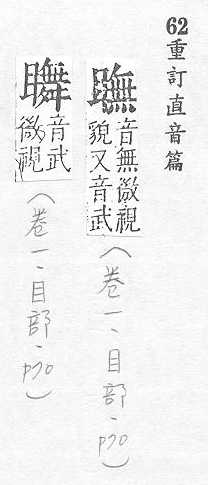 62重訂直音篇
瞴
音無微視
貌又音武
(卷一、目部、p70)
音武
微視
(卷一、目部、p70)